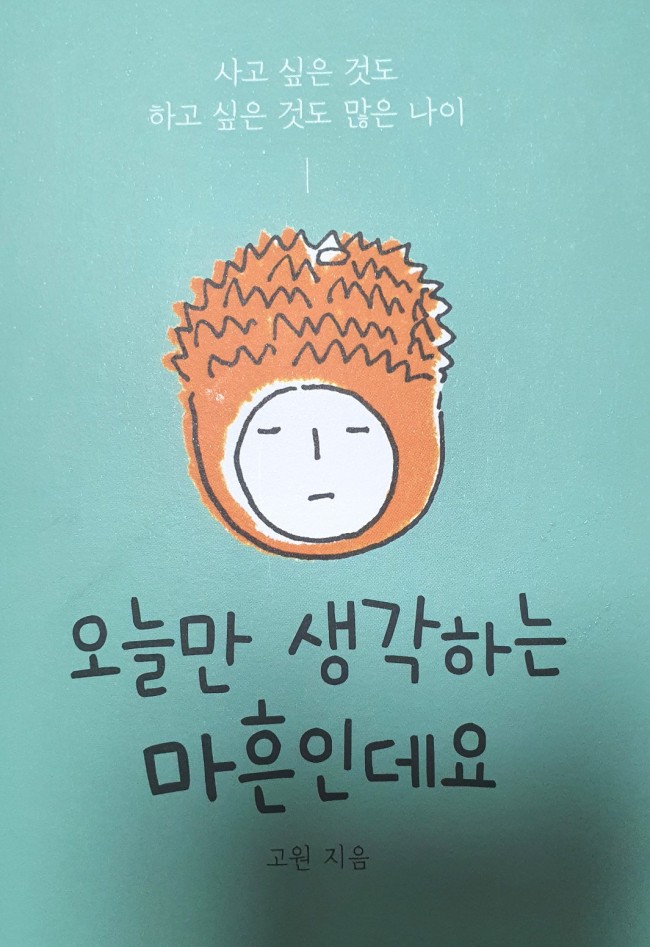 사고 싶은 것도
하고 싶은 것도 많은 나이
오늘만 생각하는
마흔인데요
고원 지음